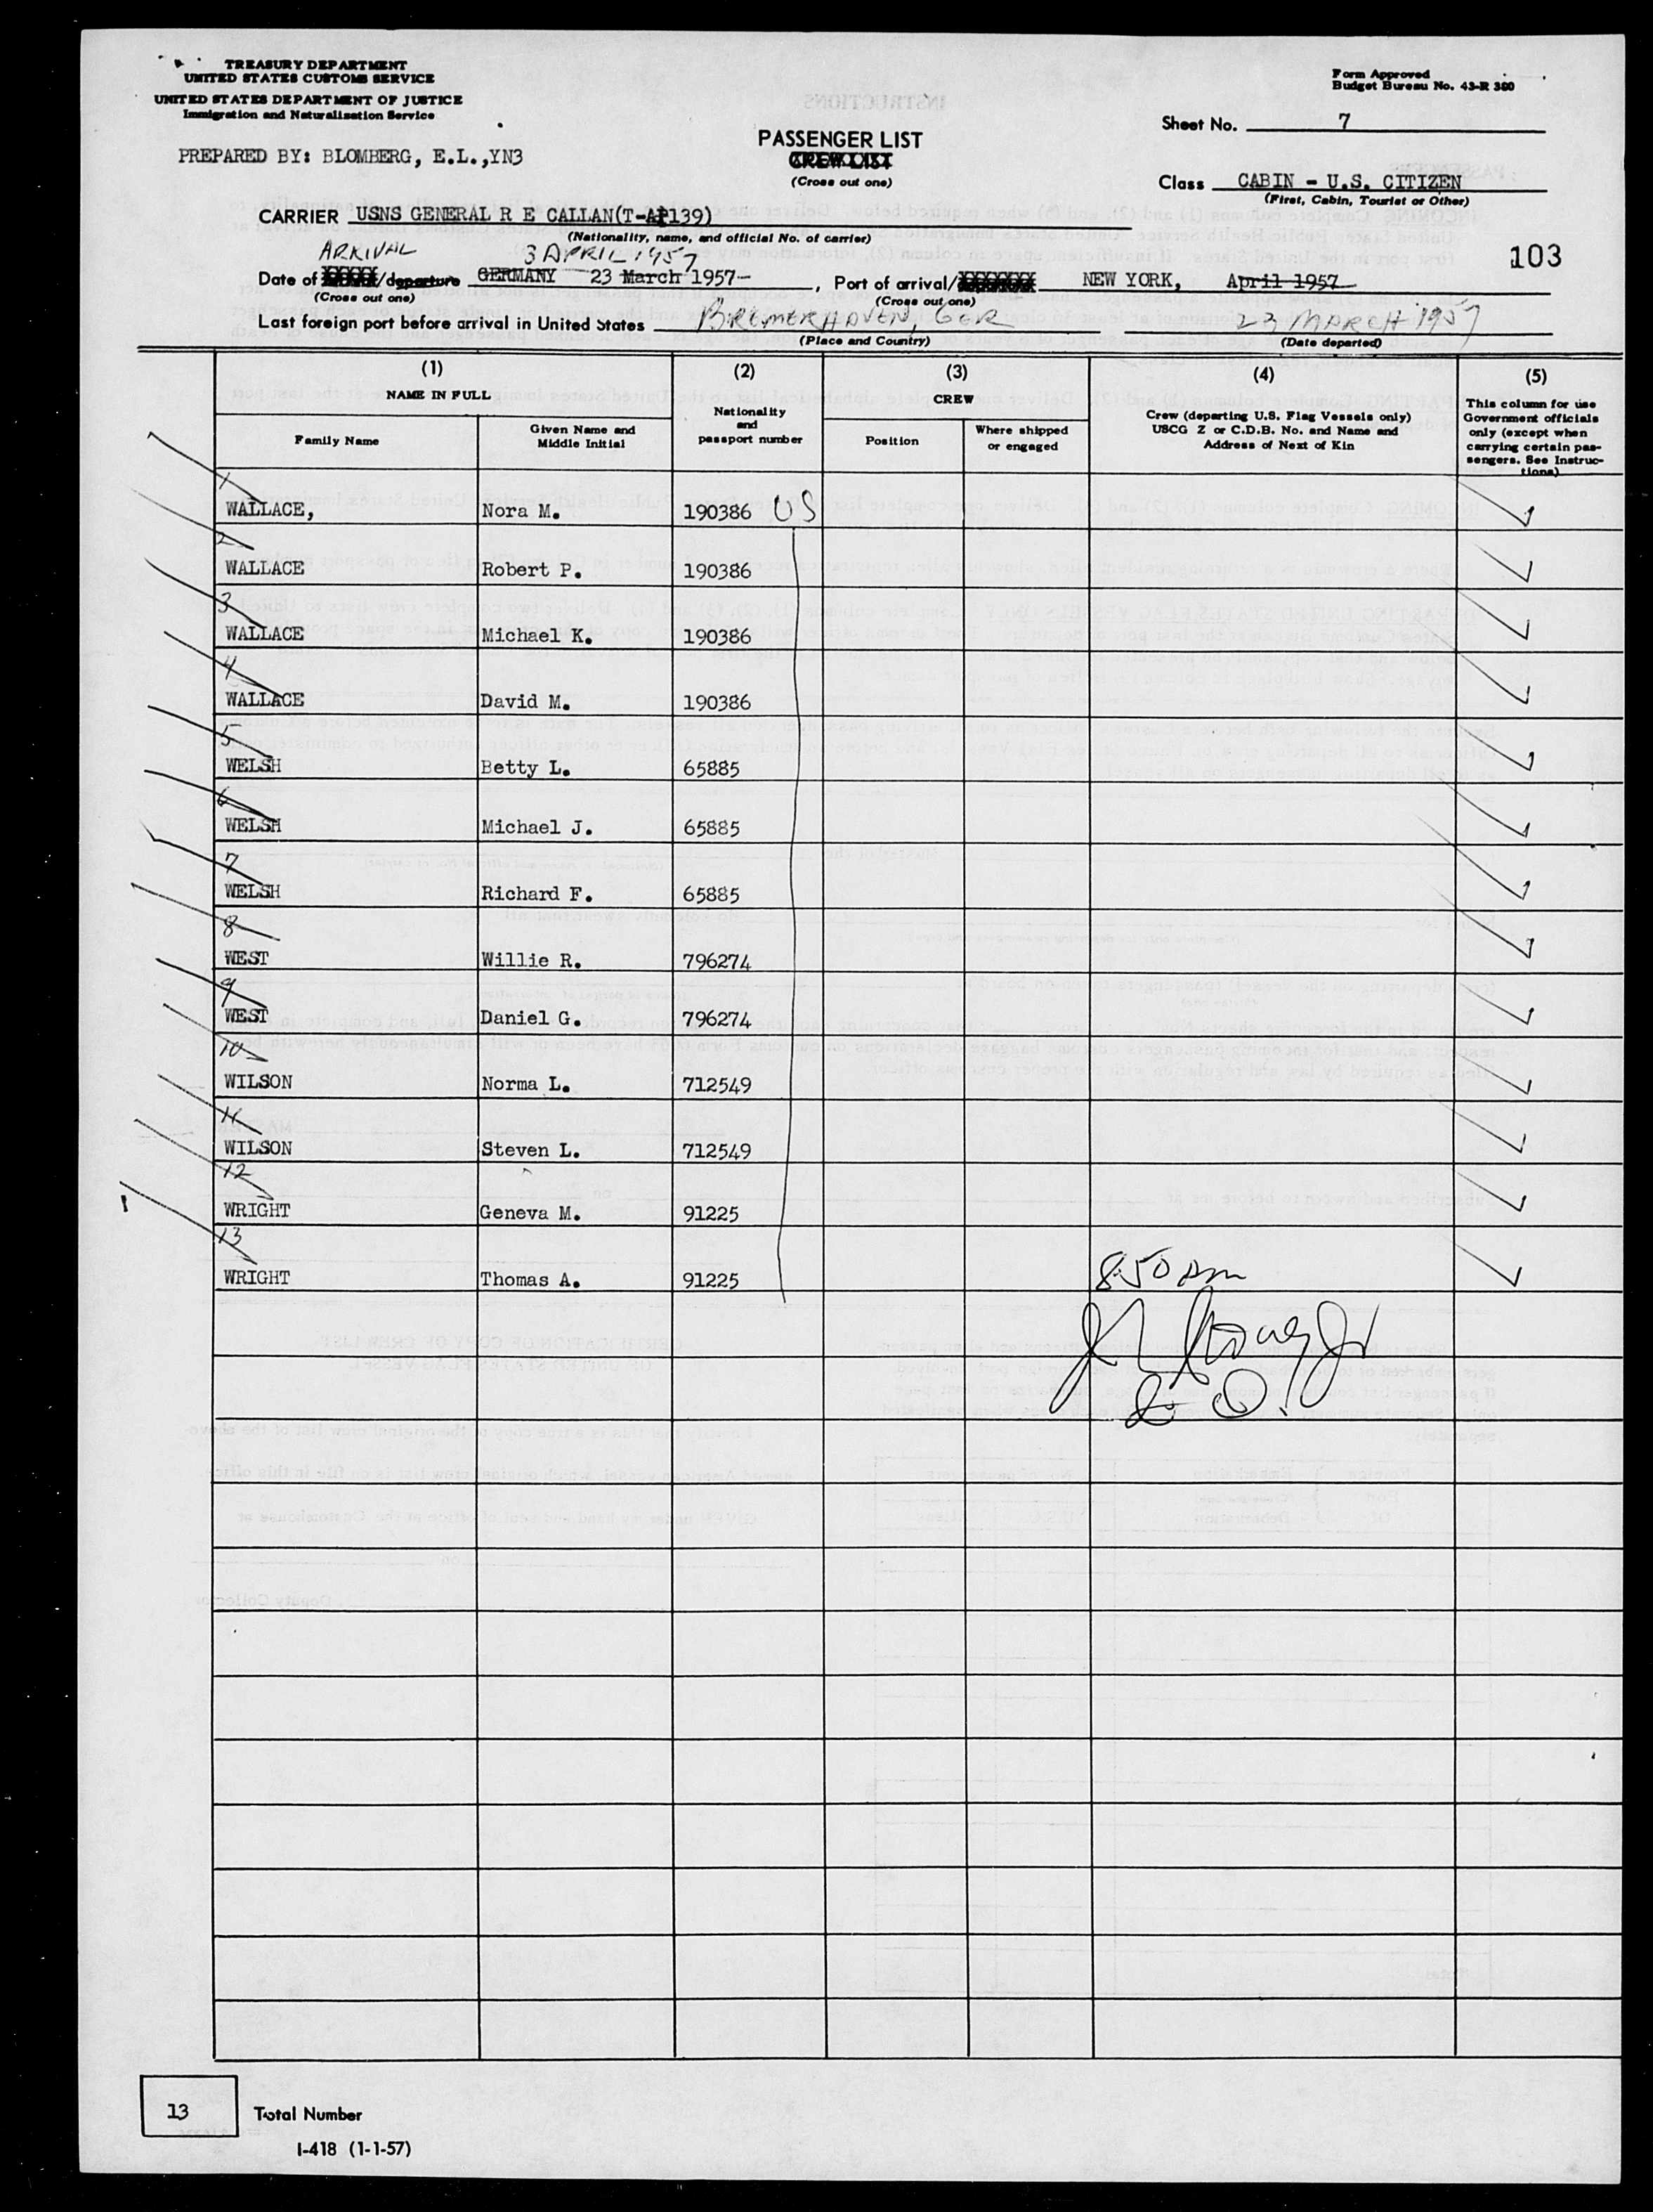 TREASURY DEPARTMENT
UNITED STATES CUSTOMS SERVICE
UNITED STATES DEPARTMENT OF JUSTICE
Immigration and Naturalization Service
PREPARED BY: BLOMBERG, E.L.,YN3
Form Approved
Budget Bureau No. 43-R 380
PASSENGER LIST
CREW LIST
(Cross out one)
Sheet No. 7
Class CABIN - U.S. CITIZEN
(First, Cabin, Tourist or Other)
CARRIER USNS GENERAL R E CALLAN(T-AP139)
(Nationality, name, and official No. of carrier)
103
ARRIVAL 3 APRIL 1957
Date of /departure GERMANY 23 March 1957- , Port of arrival/ NEW YORK, April 1957
(Cross out one) (Cross out one)
Last foreign port before arrival in United States BREMERHAVEN, GER 23 MARCH 1957
(Place and Country) (Date departed)
(1) (2) (3) (4) (5)
NAME IN FULL
Family Name
Given Name and
Middle Initial
Nationality
and
passport number
CREW
Position
Where shipped
or engaged
Crew (departing U.S. Flag Vessels only)
USCG Z or C.D.B. No. and Name and
Address of Next of Kin
This column for use
Government officials
only (except when
carrying certain pas-
sengers. See Instruc-
tions)
1
WALLACE, Nora M. 190386 US
2
WALLACE Robert P. 190386
3
WALLACE Michael K. 190386
4
WALLACE David M. 190386
5
WELSH Betty L. 65885
6
WELSH Michael J. 65885
7
WELSH Richard F. 65885
8
WEST Willie R. 796274
9
WEST Daniel G. 796274
10
WILSON Norma L. 712549
11
WILSON Steven L. 712549
12
WRIGHT Geneva M. 91225
13
WRIGHT Thomas A. 91225
8:50 am
13 Total Number
I-418 (1-1-57)